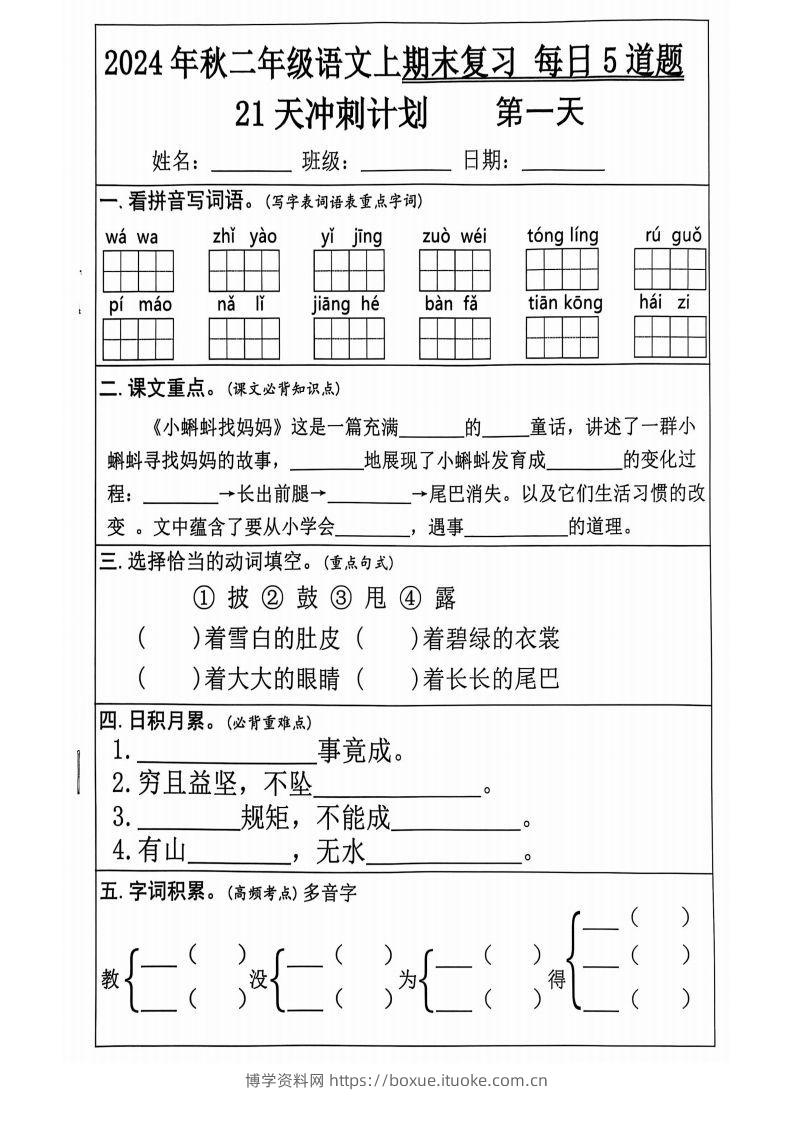 2024年秋二年级语文上期末复习 每日5道题
21天冲刺计划 第一天
姓名：________ 班级：________ 日期：________
一.看拼音写词语。(写字表词语表重点字词)
wá wa zhǐ yào yǐ jīng zuò wéi tóng líng rú guǒ
pí máo nǎ lǐ jiāng hé bàn fǎ tiān kōng hái zi
二.课文重点。(课文必背知识点)
《小蝌蚪找妈妈》这是一篇充满______的____童话，讲述了一群小
蝌蚪寻找妈妈的故事，______地展现了小蝌蚪发育成______的变化过
程：______→长出前腿→______→尾巴消失。以及它们生活习惯的改
变 。文中蕴含了要从小学会______，遇事________的道理。
三.选择恰当的动词填空。(重点句式)
① 披 ② 鼓 ③ 甩 ④ 露
( )着雪白的肚皮 ( )着碧绿的衣裳
( )着大大的眼睛 ( )着长长的尾巴
四.日积月累。(必背重难点)
1.____________事竟成。
2.穷且益坚，不坠____________。
3.________规矩，不能成__________。
4.有山________，无水____________。
五.字词积累。(高频考点)多音字
教 ___( ) ___( ) 没 ___( ) ___( ) 为 ___( ) ___( ) 得 ___( ) ___( ) ___( )
博学资料网 https://boxue.ituoke.com.cn